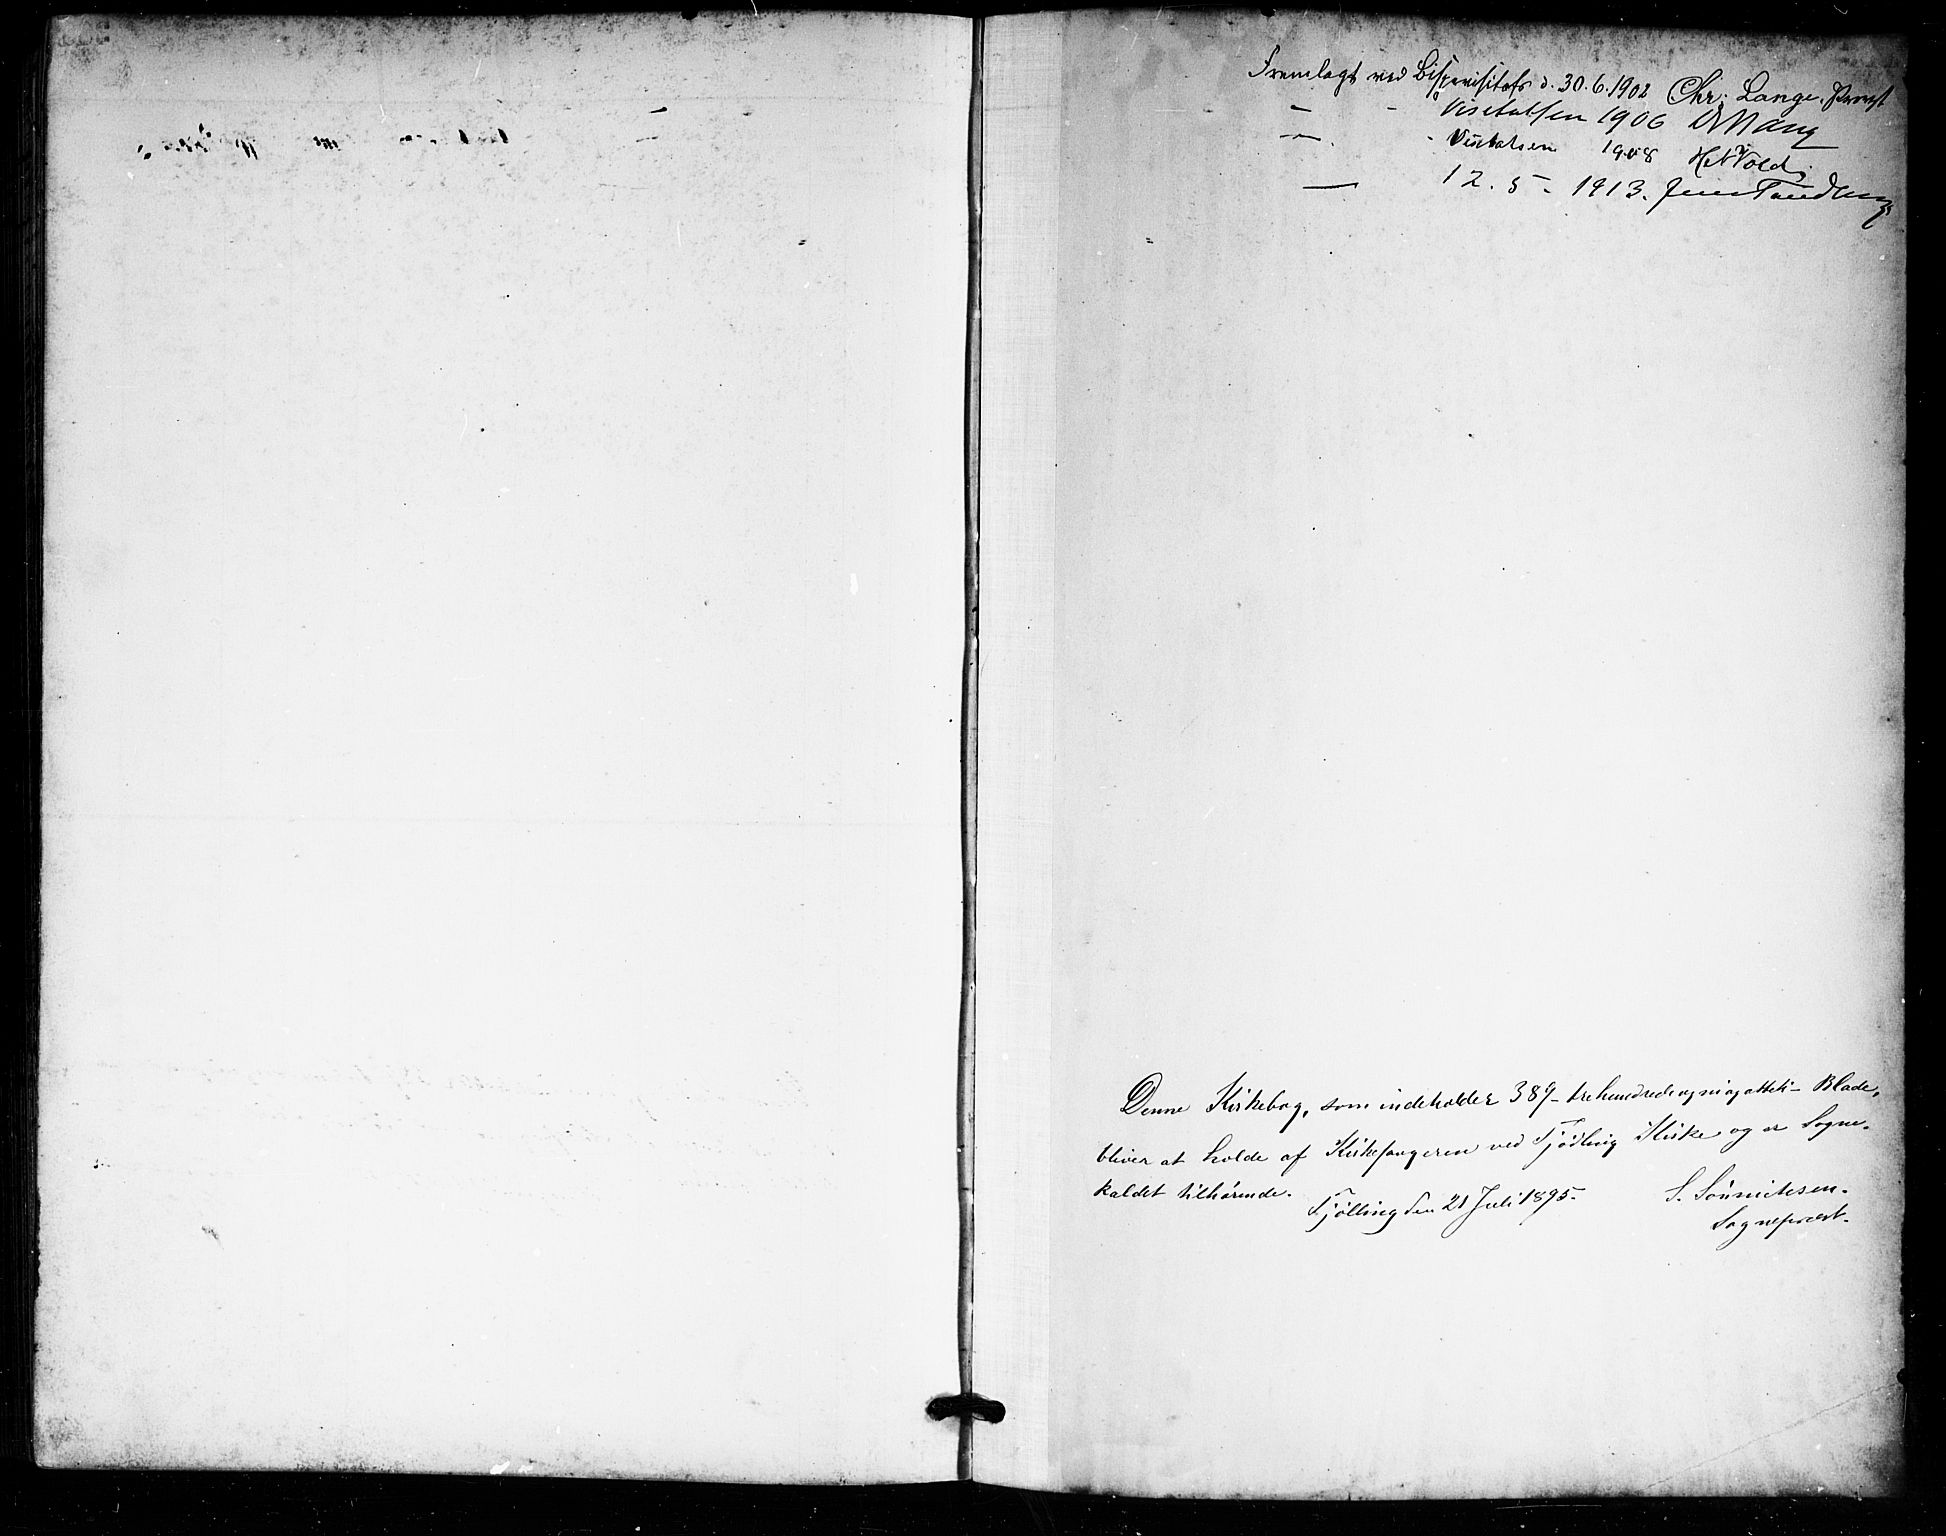 Fremlagt ved Bispevisitats d. 30.6.1902 Chr. Lange. Provst
— - Visitatsen 1906
— - Visitatsen 1908 H. N. Vold.
— 12. 5 - 1913. Jens Tandberg
Denne Kirkebog, som indeholder 389 - trehundrede og niogotteti - Blade,
bliver at holde af Kirkesangeren ved Tjødling Kirke og er Sogne-
kaldet tilhørende.
Tjølling den 21 Juli 1895. S. Sönnichsen.
Sogneprest.